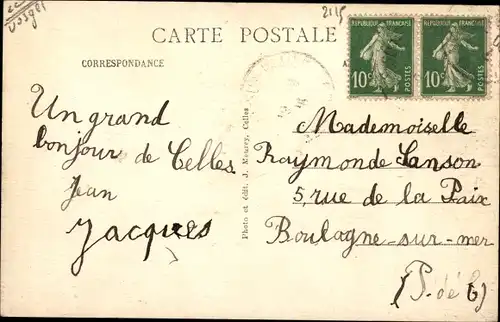 Vosges
2115
CARTE POSTALE
CORRESPONDANCE
REPUBLIQUE FRANÇAISE
10c POSTES
REPUBLIQUE FRANÇAISE
10c POSTES
Un grand
bonjour de Celles
Jean
Jacques
Photo et édit. J. Mourry, Celles
Mademoiselle
Raymonde Sanson
5, rue de la Paix
Boulogne-sur-mer
(P. de C)